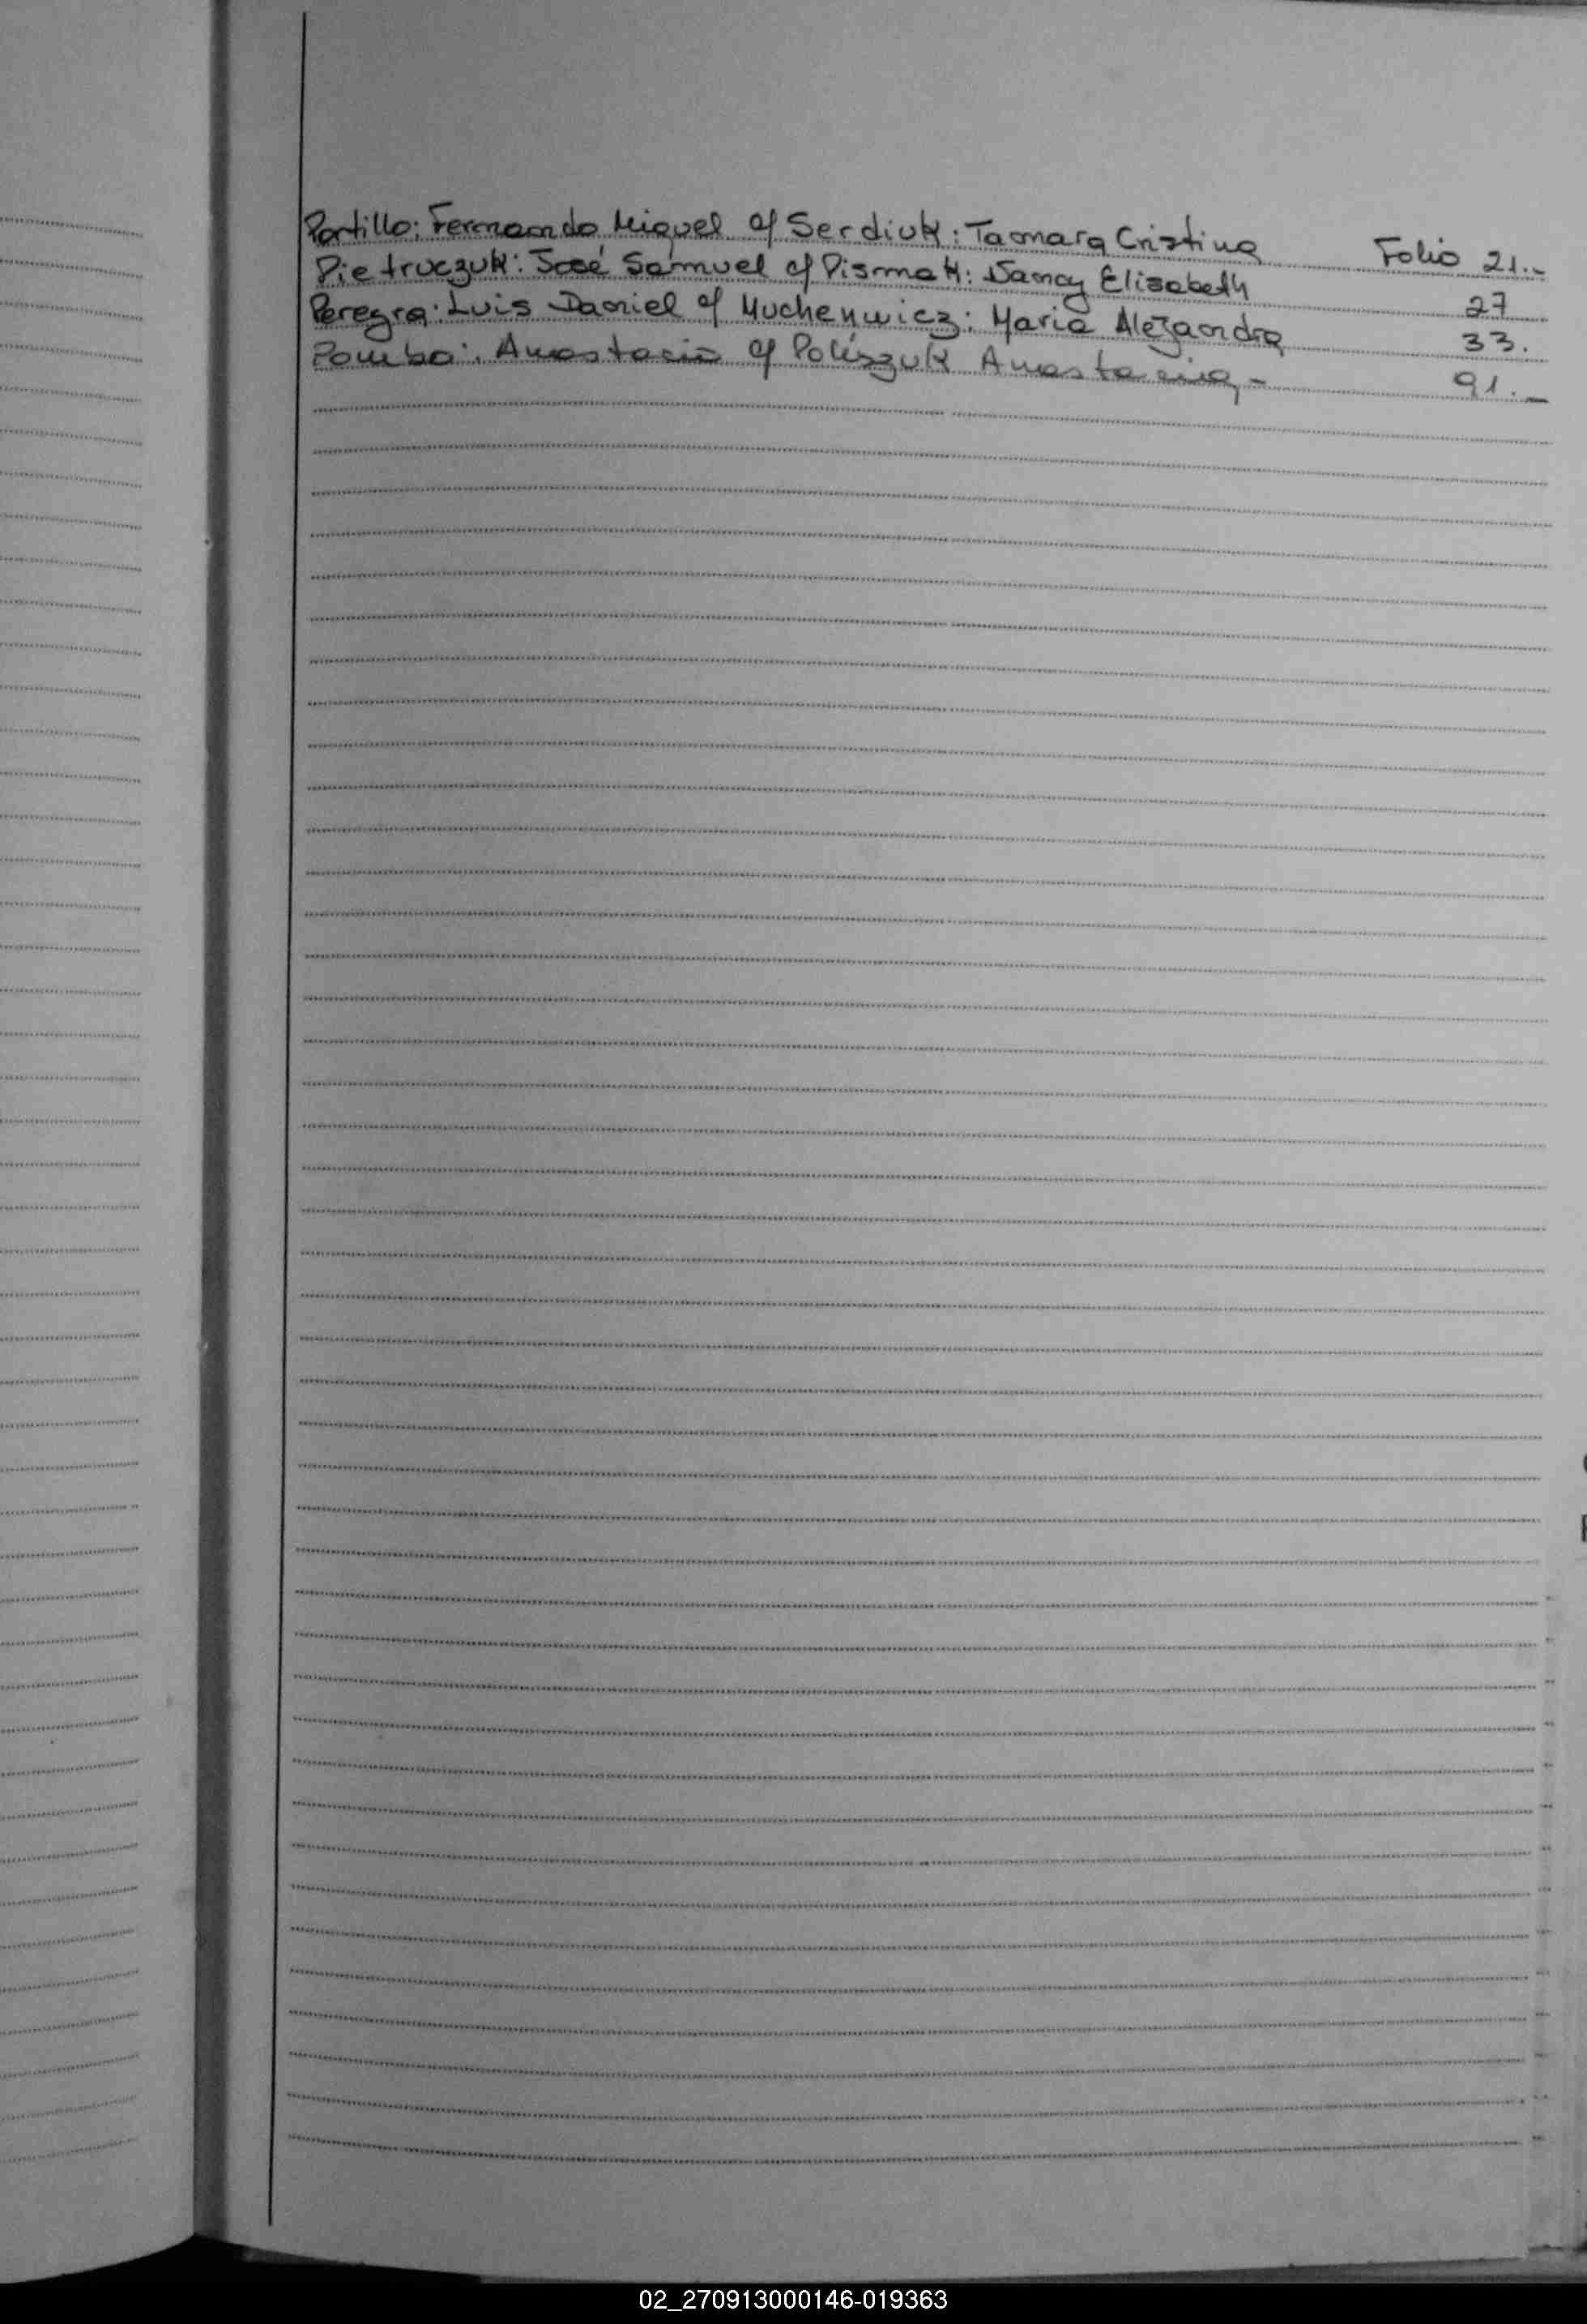 Portillo: Fernando Miguel c/ Serdiuk: Tamara Cristina Folio 21.-
Pietruczuk: José Samuel c/ Pismak: Nancy Elisabeth 27
Pereyra: Luis Daniel c/ Muchenwicz: Maria Alejandra 33.
Pomba: Anastacio c/ Poliszuk Anastacia,- 91.-
02_270913000146-019363